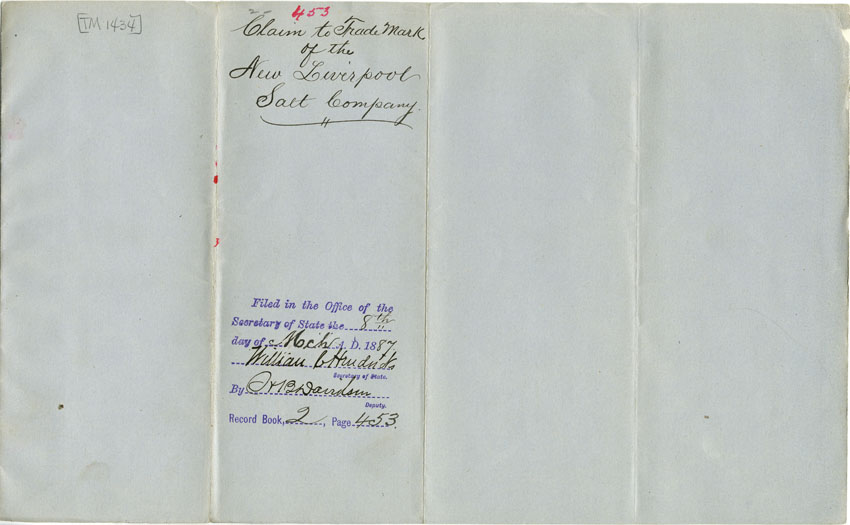 [TM 1434]
2- 453
Claim to Trade Mark
of the
New Liverpool
Salt Company.
Filed in the Office of the
Secretary of State the 8th
day of Mch A. D. 1887
William C Hendricks
Secretary of State.
By
Deputy.
Record Book, 2, Page 453.